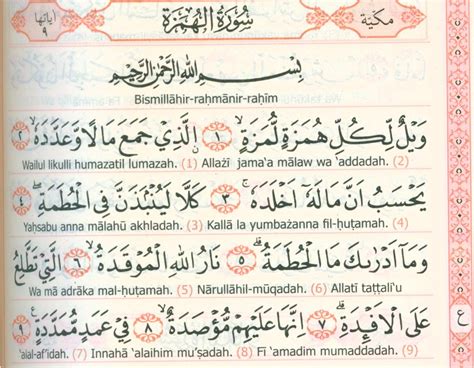 مَكِّيَّة سُوْرَةُ الْهُمَزَةِ اٰيَاتُهَا ٩
بِسْمِ اللّٰهِ الرَّحْمٰنِ الرَّحِيْمِ
Bismillāhir-raḥmānir-raḥīm
وَيْلٌ لِّكُلِّ هُمَزَةٍ لُّمَزَةٍۙ ١ ۨالَّذِيْ جَمَعَ مَالًا وَّعَدَّدَهٗۙ ٢
Wailul likulli humazatil lumazah. (1) Allażī jama'a mālaw wa 'addadah. (2)
يَحْسَبُ اَنَّ مَالَهٗٓ اَخْلَدَهٗۚ ٣ كَلَّا لَيُنْۢبَذَنَّ فِى الْحُطَمَةِۖ ٤
Yaḥsabu anna mālahū akhladah. (3) Kallā la yumbażanna fil-ḥuṭamah. (4)
وَمَآ اَدْرٰىكَ مَا الْحُطَمَةُۗ ٥ نَارُ اللّٰهِ الْمُوْقَدَةُۙ ٦ الَّتِيْ تَطَّلِعُ
Wa mā adrāka mal-ḥuṭamah. (5) Nārullāhil-mūqadah. (6) Allatī taṭṭali'u
عَلَى الْاَفْـِٕدَةِۗ ٧ اِنَّهَا عَلَيْهِمْ مُّؤْصَدَةٌۙ ٨ فِيْ عَمَدٍ مُّمَدَّدَةٍ ٩
'alal-af'idah. (7) Innahā 'alaihim mu'ṣadah. (8) Fī 'amadim mumaddadah. (9)
ع